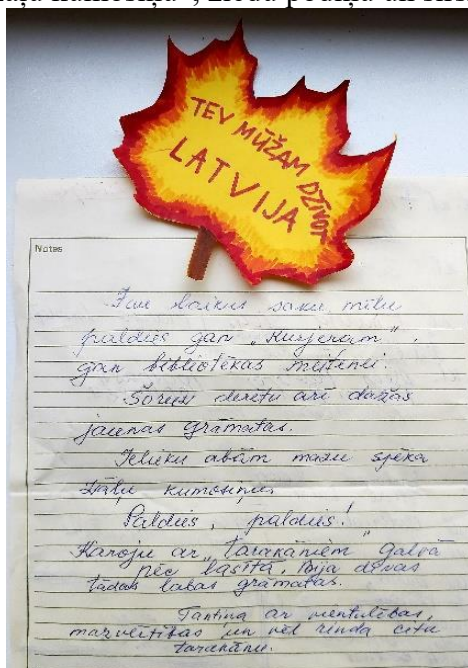 TEV MŪŽAM DZĪVOT
LATVIJA
Notes
saku mīļu
paldies gan „Kurjeram”,
gan bibliotēkas meitenei.
Šoreiz derētu arī dažas
jaunas grāmatas.
Ielieku abām mazu spēka
zāļu kumosiņu.
Paldies, paldies!
Karoju ar „tarakāniem” galvā
pēc lasītā, bija divas
tādas labas grāmatas.
Tantiņa ar vientulības,
mazvērtības un vēl rinda citu
tarakānu.